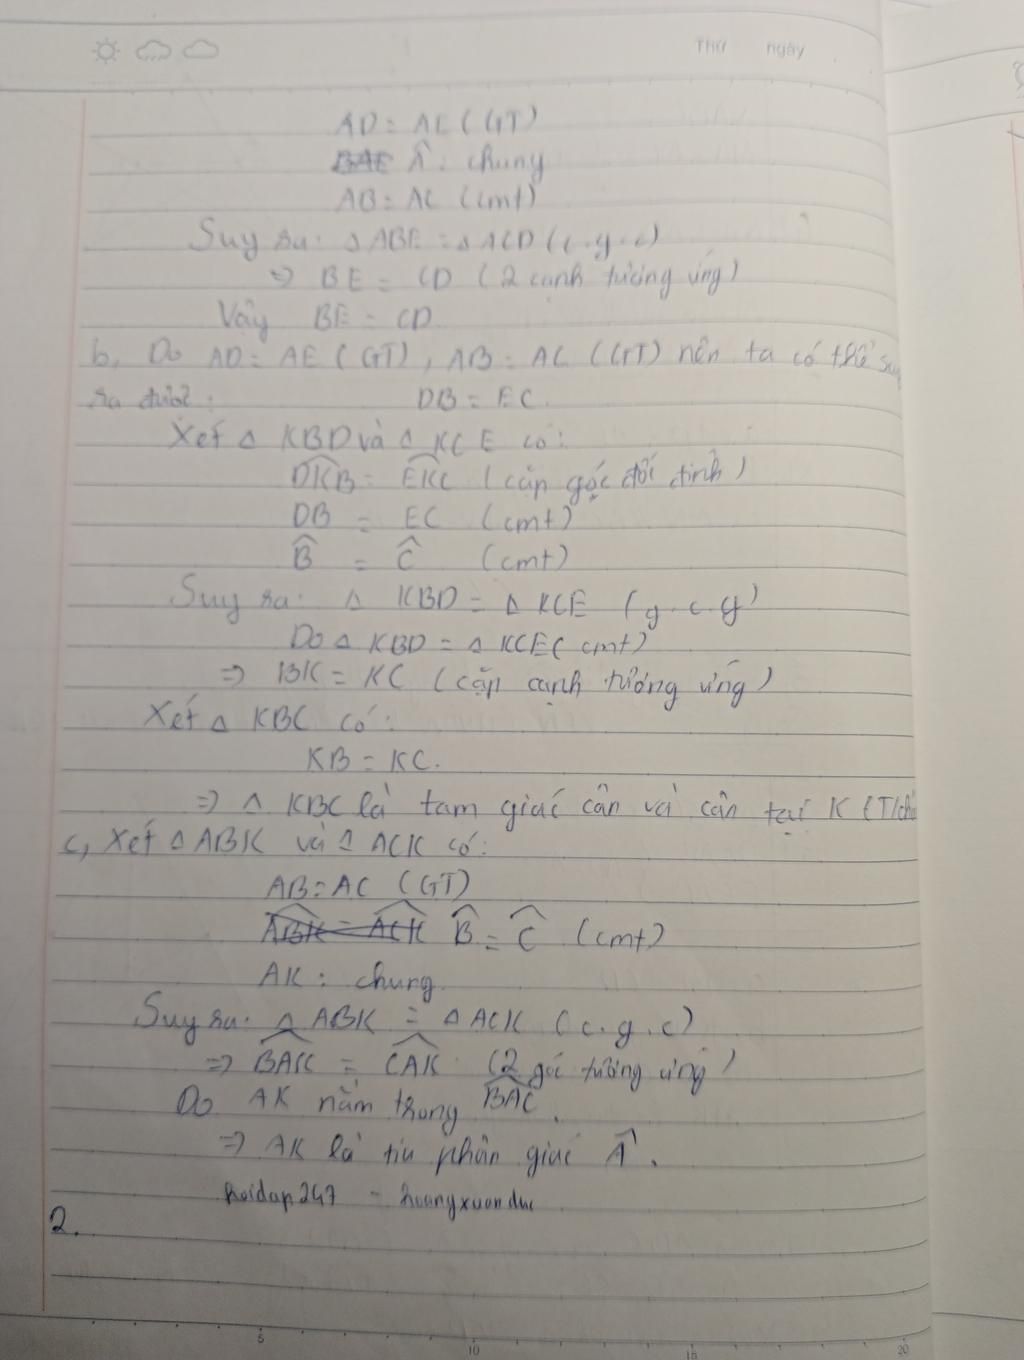 Thứ ngày
AD = AE (GT)
Â: chung
AB = AC (cmt)
Suy ra: △ ABE = △ ACD (c.g.c)
=> BE = CD (2 cạnh tương ứng)
Vậy BE = CD
b, Do AD = AE (GT), AB = AC (GT) nên ta có thể suy
ra được: DB = EC.
Xét △ KBD và △ KCE có:
DKB^ = EKC^ (cặp góc đối đỉnh)
DB = EC (cmt)
B^ = C^ (cmt)
Suy ra: △ KBD = △ KCE (g.c.g)
Do △ KBD = △ KCE (cmt)
=> BK = KC (cặp cạnh tương ứng)
Xét △ KBC có:
KB = KC.
=> △ KBC là tam giác cân và cân tại K (T/chất
c, Xét △ ABK và △ ACK có:
AB = AC (GT)
B^ = C^ (cmt)
AK: chung
Suy ra: △ ABK = △ ACK (c.g.c)
=> BAK^ = CAK^ (2 góc tương ứng)
Do AK nằm trong BAC^.
=> AK là tia phân giác Â.
hoidap247 - hoangxuanduc
2.
5 10 15 20